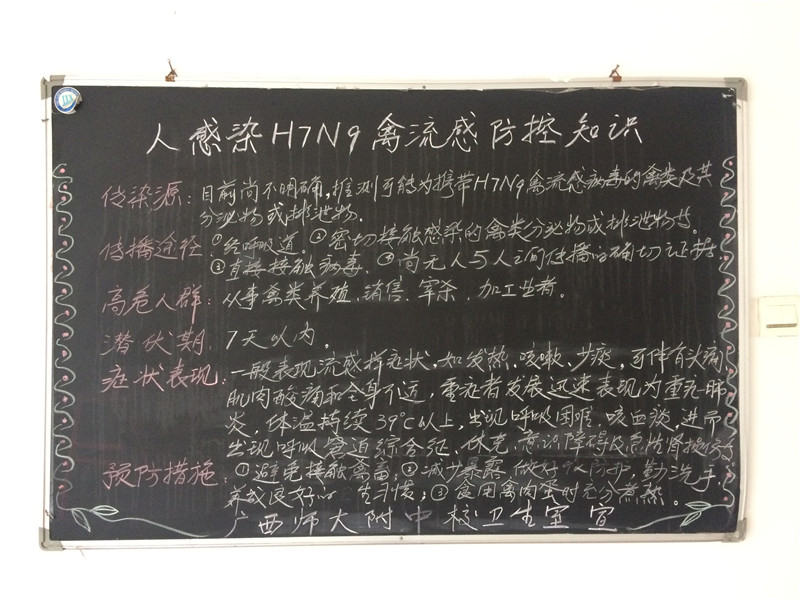 人感染H7N9禽流感防控知识
传染源：目前尚不明确，推测可能为携带H7N9禽流感病毒的禽类及其
分泌物或排泄物.
传播途径：①经呼吸道。②密切接触感染的禽类分泌物或排泄物等。
③直接接触病毒.④尚无人与人之间传播的确切证据。
高危人群：从事禽类养殖.销售.宰杀.加工业者。
潜伏期：7天以内。
症状表现：一般表现流感样症状，如发热、咳嗽、少痰，可伴有头痛、
肌肉酸痛和全身不适，重症者发展迅速表现为重症肺
炎，体温持续39℃以上，出现呼吸困难.咳血痰，进而
出现呼吸窘迫综合征.休克.意识障碍及急性肾损伤等
预防措施：①避免接触禽畜；②减少暴露.做好个人防护，勤洗手，
养成良好 卫生习惯；③食用禽肉蛋时充分煮熟。
广西师大附中校卫生室宣